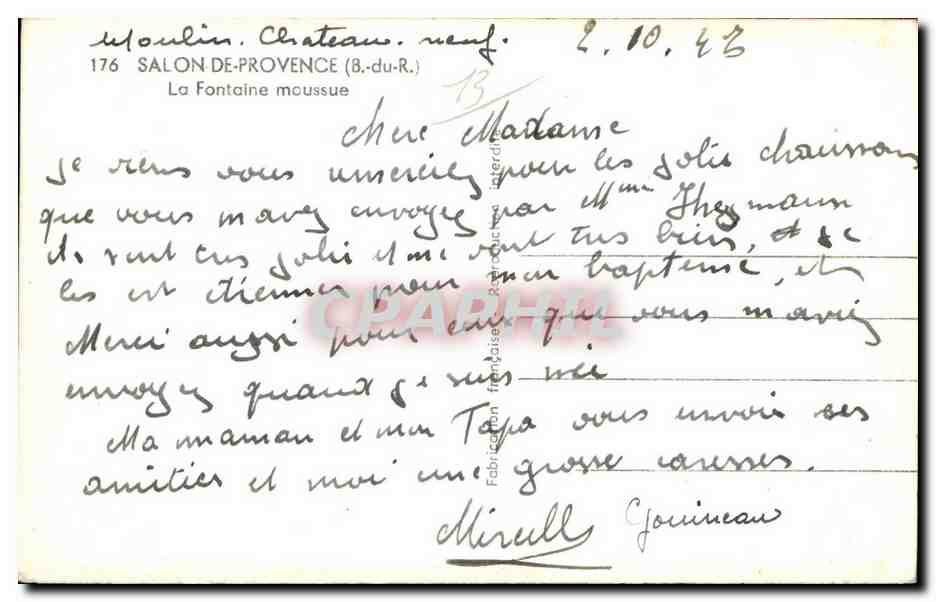 Moulin. Chateau. neuf. 2.10.43
176 SALON-DE-PROVENCE (B.-du-R.)
La Fontaine moussue
13
Chere Madame
Je viens vous remerciez pour les jolie chaussons
que vous mavez envoyez par Mme
ils sont tres jolie et me vont tres bien, et je
les est etrenner pour mon bapteme, et
Merci aussi pour ceux que vous maviez
envoyez quand je suis née
Ma maman et mon Papa vous envoie ses
amities et moi une grosse caresses.
Mireille Gouineau
Fabrication française - Reproduction interdite
CPARHIL